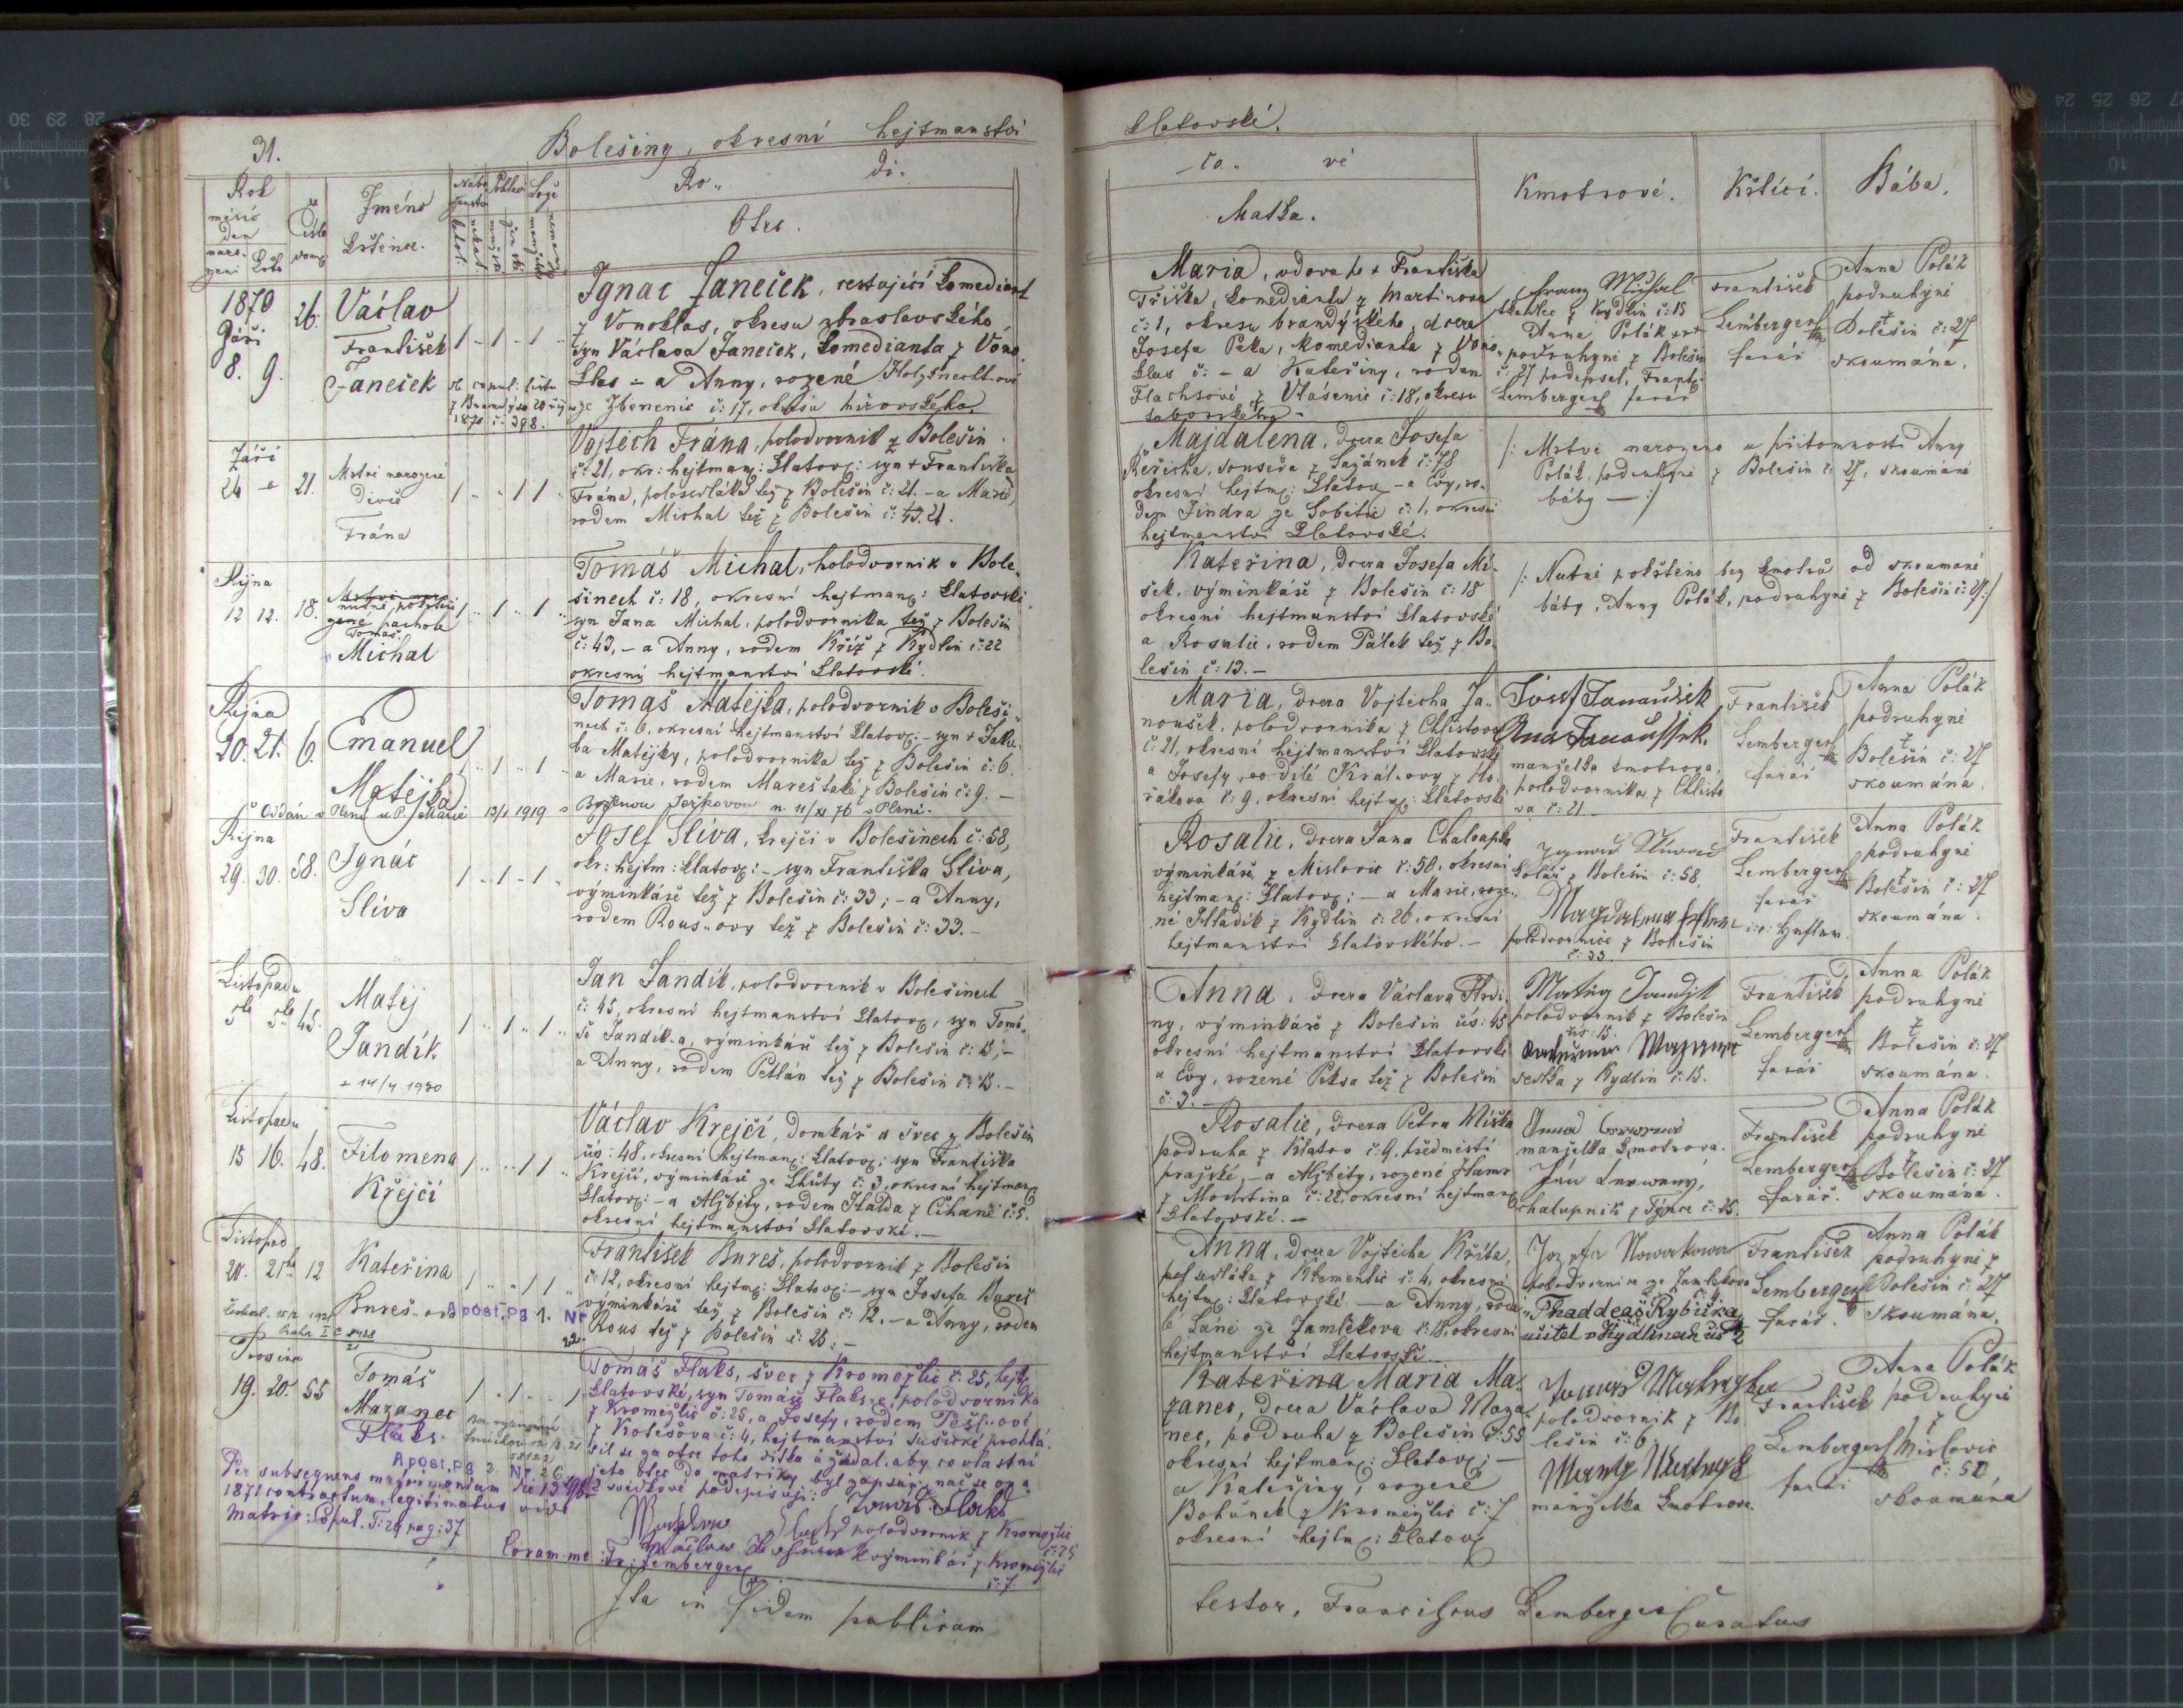 31.
Bolešiny, okresní hejtmanství
Klatovské.
Rok
měsíc
den
naro-
zení
Číslo
domu
Jméno
křtěnce.
Nábo
ženství
Pohlaví
Lože
Ro..
di..
Otec.
1870
Září
8. 9.
26.
Václav
František
Janeček
1 .. 1 .. 1 ..
1870 č: 398.
Ignac Janeček, cestující komediant
z Vonoklas, okresu zbraslavského,
syn Václava Janeček, komedianta z Vono
klas – a Anny, rozené Holzknechtové
ze Zbenenic č: 17, okresu mirovského.
Září
24
21.
Mrtvě narozené
děvče
Frána
1 .. .. 1 1 ..
Vojtěch Frána, polodvorník z Bolešin
č: 21, okr: hejtman: Klatov: syn + Františka
Frána, polosedláka též z Bolešin č: 21. – a Marie,
rodem Michal též z Bolešin č: 43. 21.
Října
12 12. 18.
nutně pokřtěné
pachole
Tomáš
Michal
1 .. 1 .. 1 ..
Tomáš Michal, polodvorník v Bole-
šinech č: 18, okresní hejtman: Klatovské
syn Jana Michal, polodvorníka též z Bolešin
č: 43, – a Anny, rodem Kříž z Kydlin č: 22
okresní hejtmanství Klatovské.
Října
20. 21. 6.
Emanuel
Matějka
1 .. 1 .. 1 ..
Oddán v Plzni u P. Marie 13/1 1919 s Boženou Ježkovou n. 11/XI 76 v Plzni.
Tomáš Matějka, polodvorník v Boleši-
nech č: 6, okresní hejtmanství Klatov: – syn + Jaku-
ba Matějky, polodvorníka též z Bolešin č: 6.
a Marie, rodem Mareš také z Bolešin č: 9. –
Října
29. 30. 58.
Ignác
Slíva
1 .. 1 .. 1 ..
Josef Slíva, krejčí v Bolešinech č: 58,
okr: hejtm: Klatov: – syn Františka Slíva,
výminkáře též z Bolešin č: 33; – a Anny,
rodem Rous..ovy též z Bolešin č: 33. –
Listopadu
5ho 5ho 45.
Matěj
Jandík
+ 14/4 1930
1 .. 1 .. 1 ..
Jan Jandík, polodvorník v Bolešinech
č: 45, okresní hejtmanství Klatov:, syn Tomá-
še Jandík-a, výminkáře též z Bolešin č: 15; –
a Anny, rodem Petlán též z Bolešin č: 15. –
Listopadu
15 16. 48.
Filomena
Krejčí
1 .. .. 1 1 ..
Václav Krejčí, domkář a švec z Bolešin
čís: 48, okresní hejtman: Klatov: syn Františka
Krejčí, výminkáře ze Lhůty č: 3, okresní hejtman:
Klatov: – a Alžběty, rodem Halda z Číhaně č: 5.
okresní hejtmanství Klatovské. –
Listopad
20. 21ho 12
Kateřina
Bureš
1 .. .. 1 1 ..
Apost. pg. 1. Nr
22.
František Bureš, polodvorník z Bolešin
č: 12, okresní hejtm: Klatov: – syn Josefa Bureš
výminkáře též z Bolešin č: 12. – a Anny, rodem
Rous též z Bolešin č: 26. –
Prosince
19. 20. 55
Tomáš
Mazanec
Flaks.
1 .. 1 .. .. 1
Apost. pg 2. Nr. 26
Per subsequens matrimonium
1871 contractum, legitimatus vide
matric: Copul. T: 24 pag: 37
Tomáš Flaks, švec z Kroměždic č: 25, hejt:
Klatovské, syn Tomáše Flaks-e, polodvorníka
z Kroměždic č: 25, a Josefy, rodem Pešl..ové
z Kolešova č: 4, hejtmanství sušické prohlá-
sil se za otce toho dítka a žádal, aby co vlastní
jeho otec do matriky byl zapsán, nač se on a
2 svědkové podepisují: Tomáš Flaks
polodvorník z Kroměždic
č: 25
výminkář z Kroměždic
č: 7.
Coram me: Fr: Lemberger
Ita in fidem publicam
..co..
vé
Matka.
Kmotrové.
Křtící.
Bába.
Maria, vdova po + Františka
Tříška, komedianta z Martinova
č: 1, okresu brandýského, dcera
Josefa Peka, komedianta z Vono-
klas č: – a Kateřiny, rodem
Flachsové z Vlásenic č: 18, okresu
táborského –
Franz Michal
tkadlec z Kydlin č: 15
Anna Polák
podruhyně z Bolešin
č: 27 podepsal, Frant:
Lemberger farář
František
Lemberger
farář
Anna Polák
podruhyně
z
Bolešin č: 27
zkoumána.
Majdalena, dcera Josefa
Řeřicha, souseda z Sazánek č: 78
okresní hejtm: Klatov: – a Evy, ro-
dem Jindra ze Sobětic č: 1, okresní
hejtmanství Klatovské.
/: Mrtvě narozeno u přítomnosti Anny
Polák, podruhyně z Bolešin č: 27, zkoumané
báby — :/
Kateřina, dcera Josefa Mí-
šek, výminkáře z Bolešin č: 18
okresní hejtmanství Klatovské
a Rosalie, rodem Pálek též z Bo-
lešin č: 13. –
/: Nutně pokřtěno bez kmotrů od zkoumané
báby, Anny Polák, podruhyně z Bolešin č: 27 :/
Maria, dcera Vojtěcha Ja-
noušek, polodvorníka z Chlistova
č: 21, okresní hejtmanství Klatovské
a Josefy, rodilé Král..ovy z Ho-
řákova č: 9, okresní hejtm: Klatovské
Josef Janaušek
Ana Janaussek.
manželka kmotrova,
polodvorníka z Chlisto
va č: 21
František
Lemberger
farář
Anna Polák
podruhyně
z
Bolešin č: 27
zkoumána.
Rosalie, dcera Jana Chaloupka
výminkáře z Mislovic č: 50, okresní
hejtman: Klatov: – a Marie, roze-
né Hladík z Kydlin č: 26, okresní
hejtmanství Klatovského. –
kolář z Bolešin č: 58,
polodvornice z Bolešin
č: 33
František
Lemberger
farář
Anna Polák
podruhyně
z
Bolešin č: 27
zkoumána.
Anna, dcera Václava Hrdi-
ny, výminkáře z Bolešin čís: 45
okresní hejtmanství Klatovské
a Evy, rozené Peksa též z Bolešin
č: 3. –
Matěj Jandjk
polodvorník z Bolešin
čís: 15.
z Kydlin č: 15.
František
Lemberger
farář
Anna Polák
podruhyně
z
Bolešin č: 27
zkoumána.
Rosalie, dcera Petra Miška
podruha z Klatov č: 9, předměstí
pražské, – a Alžběty, rozené Hamr
z Mochtína č: 22, okresní hejtman:
Klatovské. –
manželka kmotrova.
chalupník z Týnce č: 25.
František
Lemberger
farář.
Anna Polák
podruhyně
z
Bolešin č: 27
zkoumána.
Anna, dcera Vojtěcha Kříta,
půl sedláka z Klementic č: 4, okresní
hejtm: Klatovské — a Anny, rodem
Láně ze Zamlekova č: 18, okresní
hejtmanství Klatovské
Jozefa Nowakowa
polodvornice ze Zamlekova
č: 4.
Thaddeáš Rybička
učitel v Kydlinách čís 2
František
Lemberger
farář.
Anna Polák
podruhyně z
Bolešin č: 27
zkoumána.
Kateřina Maria Ma-
zanec, dcera Václava Maza-
nec, podruha z Bolešin č: 55
okresní hejtman: Klatov: –
a Kateřiny, rozené
Bohůnek z Kroměždic č: 7
okresní hejtm: Klatov:
polodvorník z Bo-
lešin č: 6.
manželka kmotrova.
František
Lemberger
farář
Anna Polák
podruhyně
z
Mislovic
č: 50,
zkoumána
testor, Franciscus Lemberger Curatus